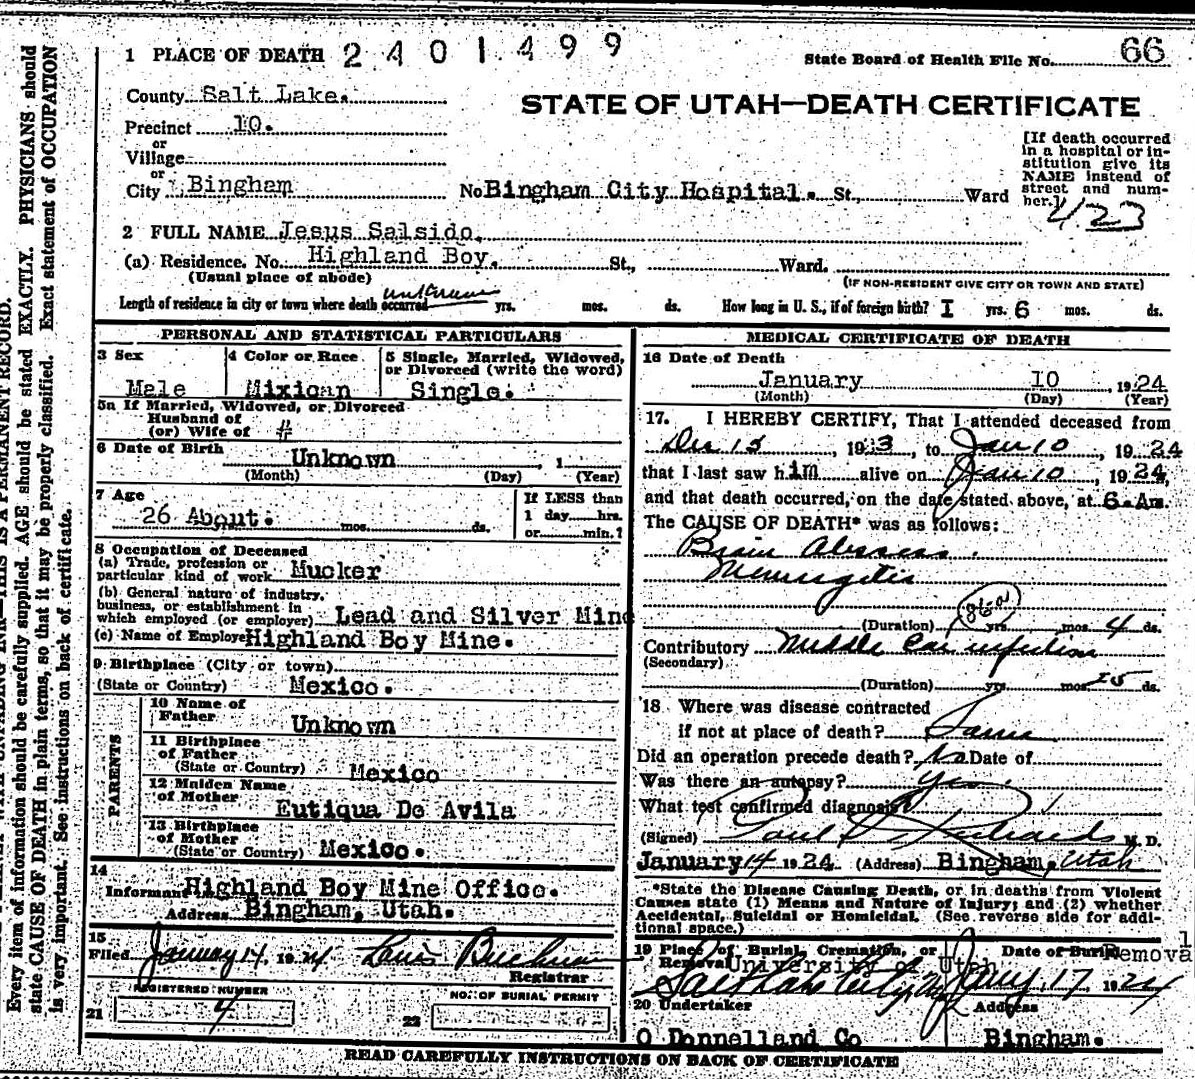 1 PLACE OF DEATH 2401499
State Board of Health File No. 66
County Salt Lake.
STATE OF UTAH—DEATH CERTIFICATE
Precinct 10.
or
Village
or
City Bingham No Bingham City Hospital. St., Ward
[If death occurred
in a hospital or in-
stitution give its
NAME instead of
street and num-
ber.]
423
2 FULL NAME Jesus Salsido.
(a) Residence. No. Highland Boy. St., Ward.
(Usual place of abode) (IF NON-RESIDENT GIVE CITY OR TOWN AND STATE)
Length of residence in city or town where death occurred unknown yrs. mos. ds. How long in U. S., if of foreign birth? I yrs. 6 mos. ds.
PERSONAL AND STATISTICAL PARTICULARS
3 Sex
Male
4 Color or Race
Mixican
5 Single, Married, Widowed,
or Divorced (write the word)
Single.
5a If Married, Widowed, or Divorced
Husband of
(or) Wife of #
6 Date of Birth
Unknown , 1
(Month) (Day) (Year)
7 Age
26 About.
yrs. mos. ds.
If LESS than
1 day hrs.
or min.?
8 Occupation of Deceased
(a) Trade, profession or
particular kind of work Mucker
(b) General nature of industry,
business, or establishment in
which employed (or employer) Lead and Silver Mine
(c) Name of Employer Highland Boy Mine.
9 Birthplace (City or town)
(State or Country) Mexico.
PARENTS
10 Name of
Father Unknown
11 Birthplace
of Father
(State or Country) Mexico
12 Maiden Name
of Mother
Eutiqua De Avila
13 Birthplace
of Mother
(State or Country) Mexico.
14
Informant Highland Boy Mine Office.
Address Bingham, Utah.
15
Filed January 14, 1924
Registrar
REGISTERED NUMBER
21 4
NO. OF BURIAL PERMIT
22
MEDICAL CERTIFICATE OF DEATH
16 Date of Death
January 10 , 1924
(Month) (Day) (Year)
17. I HEREBY CERTIFY, That I attended deceased from
Dec 15, 1923, to Jan 10, 1924
that I last saw him alive on Jan 10, 1924,
and that death occurred, on the date stated above, at 6 Am.
The CAUSE OF DEATH* was as follows:
Brain Abscess.
Meningitis
(Duration) yrs. mos. 4 ds.
Contributory Middle Ear infection
(Secondary)
(Duration) yrs. mos. 25 ds.
18 Where was disease contracted
if not at place of death? Same
Did an operation precede death? No Date of
Was there an autopsy? yes.
What test confirmed diagnosis?
(Signed) Paul Richards M. D.
January 14 1924 (Address) Bingham, Utah
*State the Disease Causing Death, or in deaths from Violent
Causes state (1) Means and Nature of Injury; and (2) whether
Accidental, Suicidal or Homicidal. (See reverse side for addi-
tional space.)
19 Place of Burial, Cremation, or
Removal University of Utah
Salt Lake City
Date of Burial Removal
Jany 17, 1924
20 Undertaker
O Donnelland Co
Address
Bingham.
READ CAREFULLY INSTRUCTIONS ON BACK OF CERTIFICATE
Every item of information should be carefully supplied. AGE should be stated EXACTLY. PHYSICIANS should
state CAUSE OF DEATH in plain terms, so that it may be properly classified. Exact statement of OCCUPATION
is very important. See instructions on back of certificate.